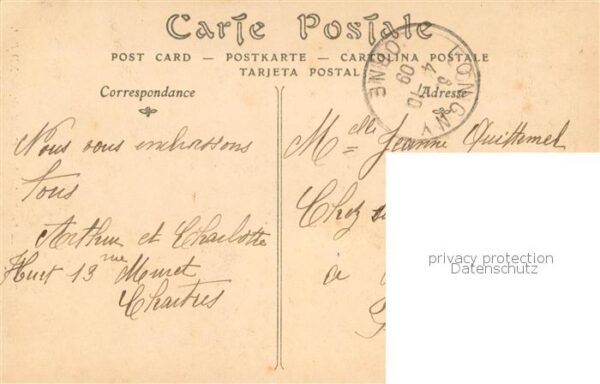 Carte Postale
POST CARD — POSTKARTE — CARTOLINA POSTALE
TARJETA POSTAL
Correspondance
Adresse
LONGN
ORNE
8-10
09
Nous vous embrassons
tous
Arthur et Charlotte
Huet 13 rue Muret
Chartres
Melle Jeanne
Chez
à
privacy protection
Datenschutz